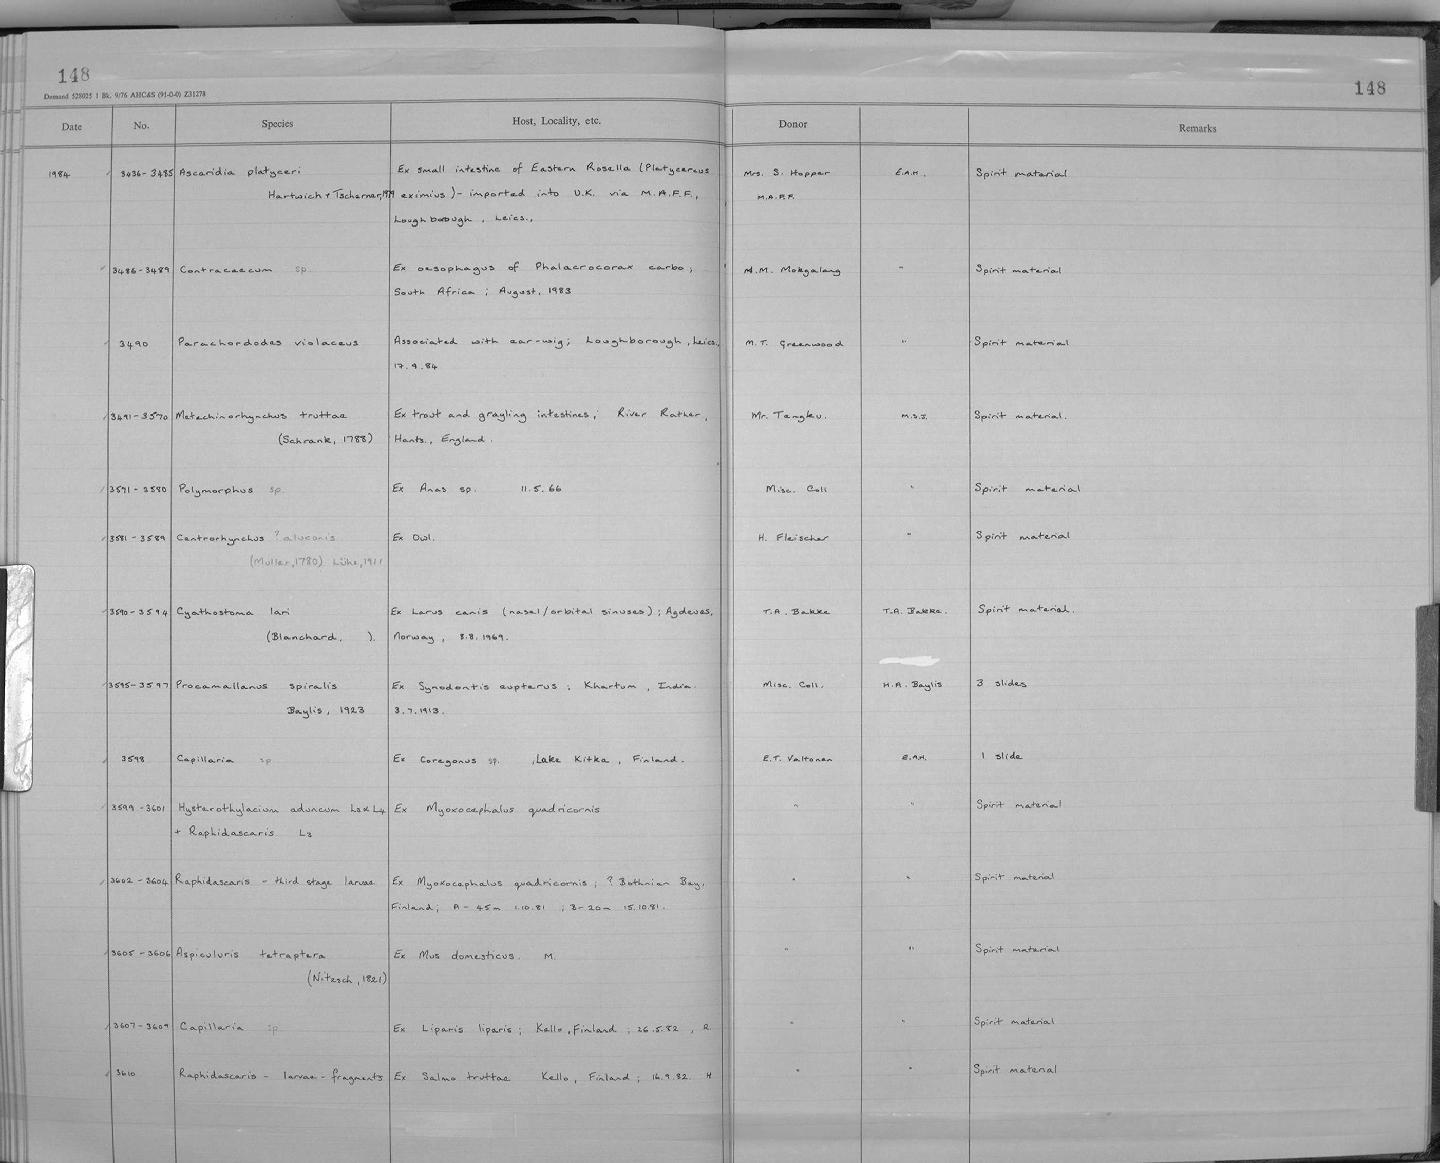 148
148
Demand 528025 1 Bk. 9/76 AHC&S (91-0-0) Z31278
Date No. Species Host, Locality, etc. Donor Remarks
1984 3436-3485 Ascaridia platyceri Ex small intestine of Eastern Rosella (Platycercus Mrs. S. Hopper E.A.H. Spirit material
Hartwich + Tscherner, 1979 eximius) - imported into U.K. via M.A.F.F., M.A.F.F.
Loughborough, Leics.,
3486-3489 Contracaecum sp. Ex oesophagus of Phalacrocorax carbo; M. Mokgalang " Spirit material
South Africa; August, 1983
3490 Parachordodes violaceus Associated with ear-wig; Loughborough, Leics., M.T. Greenwood " Spirit material
17.9.84
3491-3570 Metechinorhynchus truttae Ex trout and grayling intestines; River Rather, Mr. Tengku. M.S.S. Spirit material.
(Schrank, 1788) Hants., England.
3571-3580 Polymorphus sp. Ex Anas sp. 11.5.66 Misc. Coll " Spirit material
3581-3589 Centrorhynchus ? aluconis Ex Owl. H. Fleischer " Spirit material
(Muller, 1780) Lühe, 1911
3590-3594 Cyathostoma lari Ex Larus canis (nasal/orbital sinuses); Agdenes, T.A. Bakke T.A. Bakke. Spirit material.
(Blanchard, ). Norway, 8.8.1969.
3595-3597 Procamallanus spiralis Ex Synodontis eupterus; Khartum, India. Misc. Coll. H.A. Baylis 3 slides
Baylis, 1923 3.7.1913.
3598 Capillaria sp Ex Coregonus sp. , Lake Kitka, Finland. E.T. Valtonen E.A.H. 1 slide
3599-3601 Hysterothylacium aduncum L3 & L4 Ex Myoxocephalus quadricornis " " Spirit material
+ Raphidascaris L3
3602-3604 Raphidascaris - third stage larvae Ex Myoxocephalus quadricornis; ? Bothnian Bay, " " Spirit material
Finland; A - 45m 1.10.81 ; B - 20m 15.10.81.
3605-3606 Aspiculuris tetraptera Ex Mus domesticus. M. " " Spirit material
(Nitzsch, 1821)
3607-3609 Capillaria sp Ex Liparis liparis; Kello, Finland; 26.5.82, R. " " Spirit material
3610 Raphidascaris - larvae - fragments Ex Salmo truttae Kello, Finland; 16.9.82. H " " Spirit material